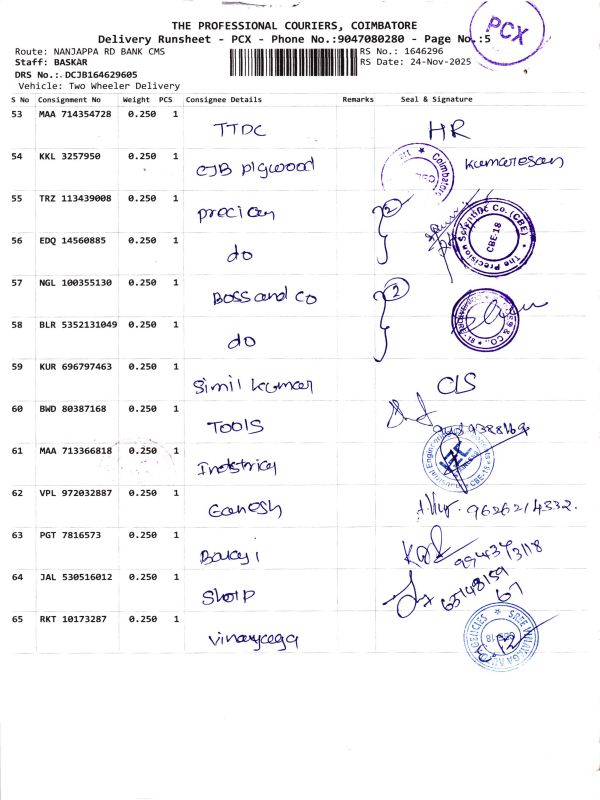 THE PROFESSIONAL COURIERS, COIMBATORE
Delivery Runsheet - PCX - Phone No.:9047080280 - Page No.:5
PCX
Route: NANJAPPA RD BANK CMS RS No.: 1646296
Staff: BASKAR RS Date: 24-Nov-2025
DRS No.: DCJB164629605
Vehicle: Two Wheeler Delivery
S No Consignment No Weight PCS Consignee Details Remarks Seal & Signature
53 MAA 714354728 0.250 1
TTDC HR
54 KKL 3257950 0.250 1
CJB plywood Kumaresan
Coimbatore
55 TRZ 113439008 0.250 1
precion 2
The Precision Scientific Co. (CBE)
CBE-18
56 EDQ 14560885 0.250 1
do
57 NGL 100355130 0.250 1
Boss and Co 2
& CO.
58 BLR 5352131049 0.250 1
do
59 KUR 696797463 0.250 1
Simil kumar CLS
60 BWD 80387168 0.250 1
TOOLS
61 MAA 713366818 0.250 1
CBE-18
62 VPL 972032887 0.250 1
Ganesh 9626214332.
63 PGT 7816573 0.250 1
Balaji 9944373118
64 JAL 530516012 0.250 1
Shop 65148159
67
65 RKT 10173287 0.250 1
vinayaga